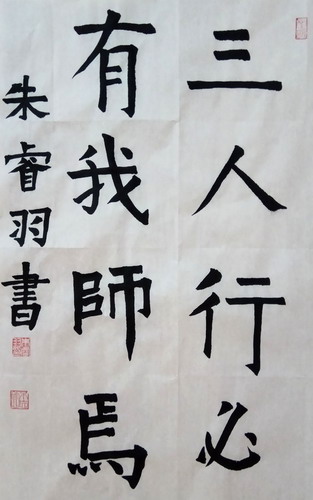 三人行必
有我師焉
朱睿羽書